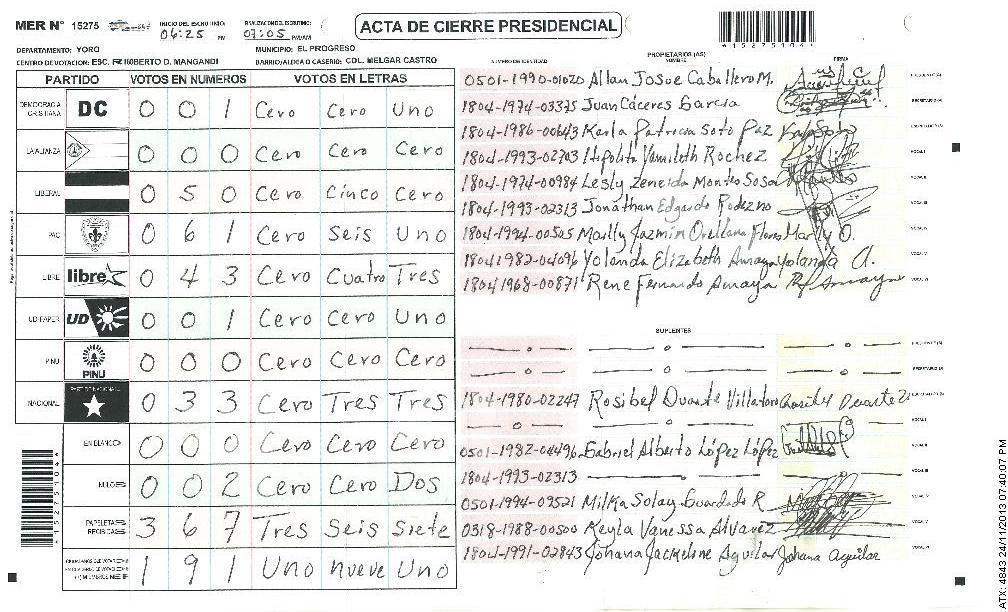 MER N° 15275 INICIO DEL ESCRUTINIO: FINALIZACION DEL ESCRUTINIO: ACTA DE CIERRE PRESIDENCIAL
06:25 PM 07:05 PM/AM *15275104*
DEPARTAMENTO: YORO MUNICIPIO: EL PROGRESO
CENTRO DE VOTACION: ESC. ROBERTO D. MANGANDI BARRIO/ALDEA O CASERIO: COL. MELGAR CASTRO
PARTIDO VOTOS EN NUMEROS VOTOS EN LETRAS
DEMOCRACIA CRISTIANA DC 0 0 1 Cero Cero Uno
LA ALIANZA 0 0 0 Cero Cero Cero
LIBERAL 0 5 0 Cero Cinco Cero
PAC 0 6 1 Cero Seis Uno
LIBRE libre 0 4 3 Cero Cuatro Tres
UD-FAPER UD 0 0 1 Cero Cero Uno
PINU PINU 0 0 0 Cero Cero Cero
NACIONAL 0 3 3 Cero Tres Tres
EN BLANCO 0 0 0 Cero Cero Cero
NULOS 0 0 2 Cero Cero Dos
PAPELETAS RECIBIDAS 3 6 7 Tres Seis Siete
1 9 1 Uno nueve Uno
NUMERO DE IDENTIDAD PROPIETARIOS (AS) NOMBRE FIRMA
0501-1990-01020 Allan Josue Caballero M. PRESIDENTE(A)
1804-1974-03375 Juan Cáceres Garcia SECRETARIO(A)
1804-1986-00643 Karla Patricia Soto Paz ESCRUTADOR(A)
1804-1993-02703 Hipolita Yamileth Rochez VOCAL I
1804-1974-00984 Lesly Zeneida Montes Sosa VOCAL II
1804-1993-02313 Jonathan Edgardo Rodezno VOCAL III
1804-1994-00505 Marlly Jazmin Orellana Flores Marlly O. VOCAL IV
1804-1982-04096 Yolanda Elizabeth Amaya Yolanda A. VOCAL V
1804-1968-00871 Rene Fernando Amaya VOCAL VI
SUPLENTES
PRESIDENTE(A)
SECRETARIO(A)
1804-1980-02247 Rosibel Duarte Villatoro
VOCAL I
0501-1982-04496 Gabriel Alberto López López VOCAL II
1804-1993-02313 VOCAL III
0501-1994-09521 Milka Solay Guardado R VOCAL IV
0318-1988-00500 Keyla Vanessa Alvarez VOCAL V
1804-1991-02843 Johana Jackeline Aguilar Johana Aguilar VOCAL VI
*15275104*
ATX: 4843 24/11/2013 07:40:07 PM